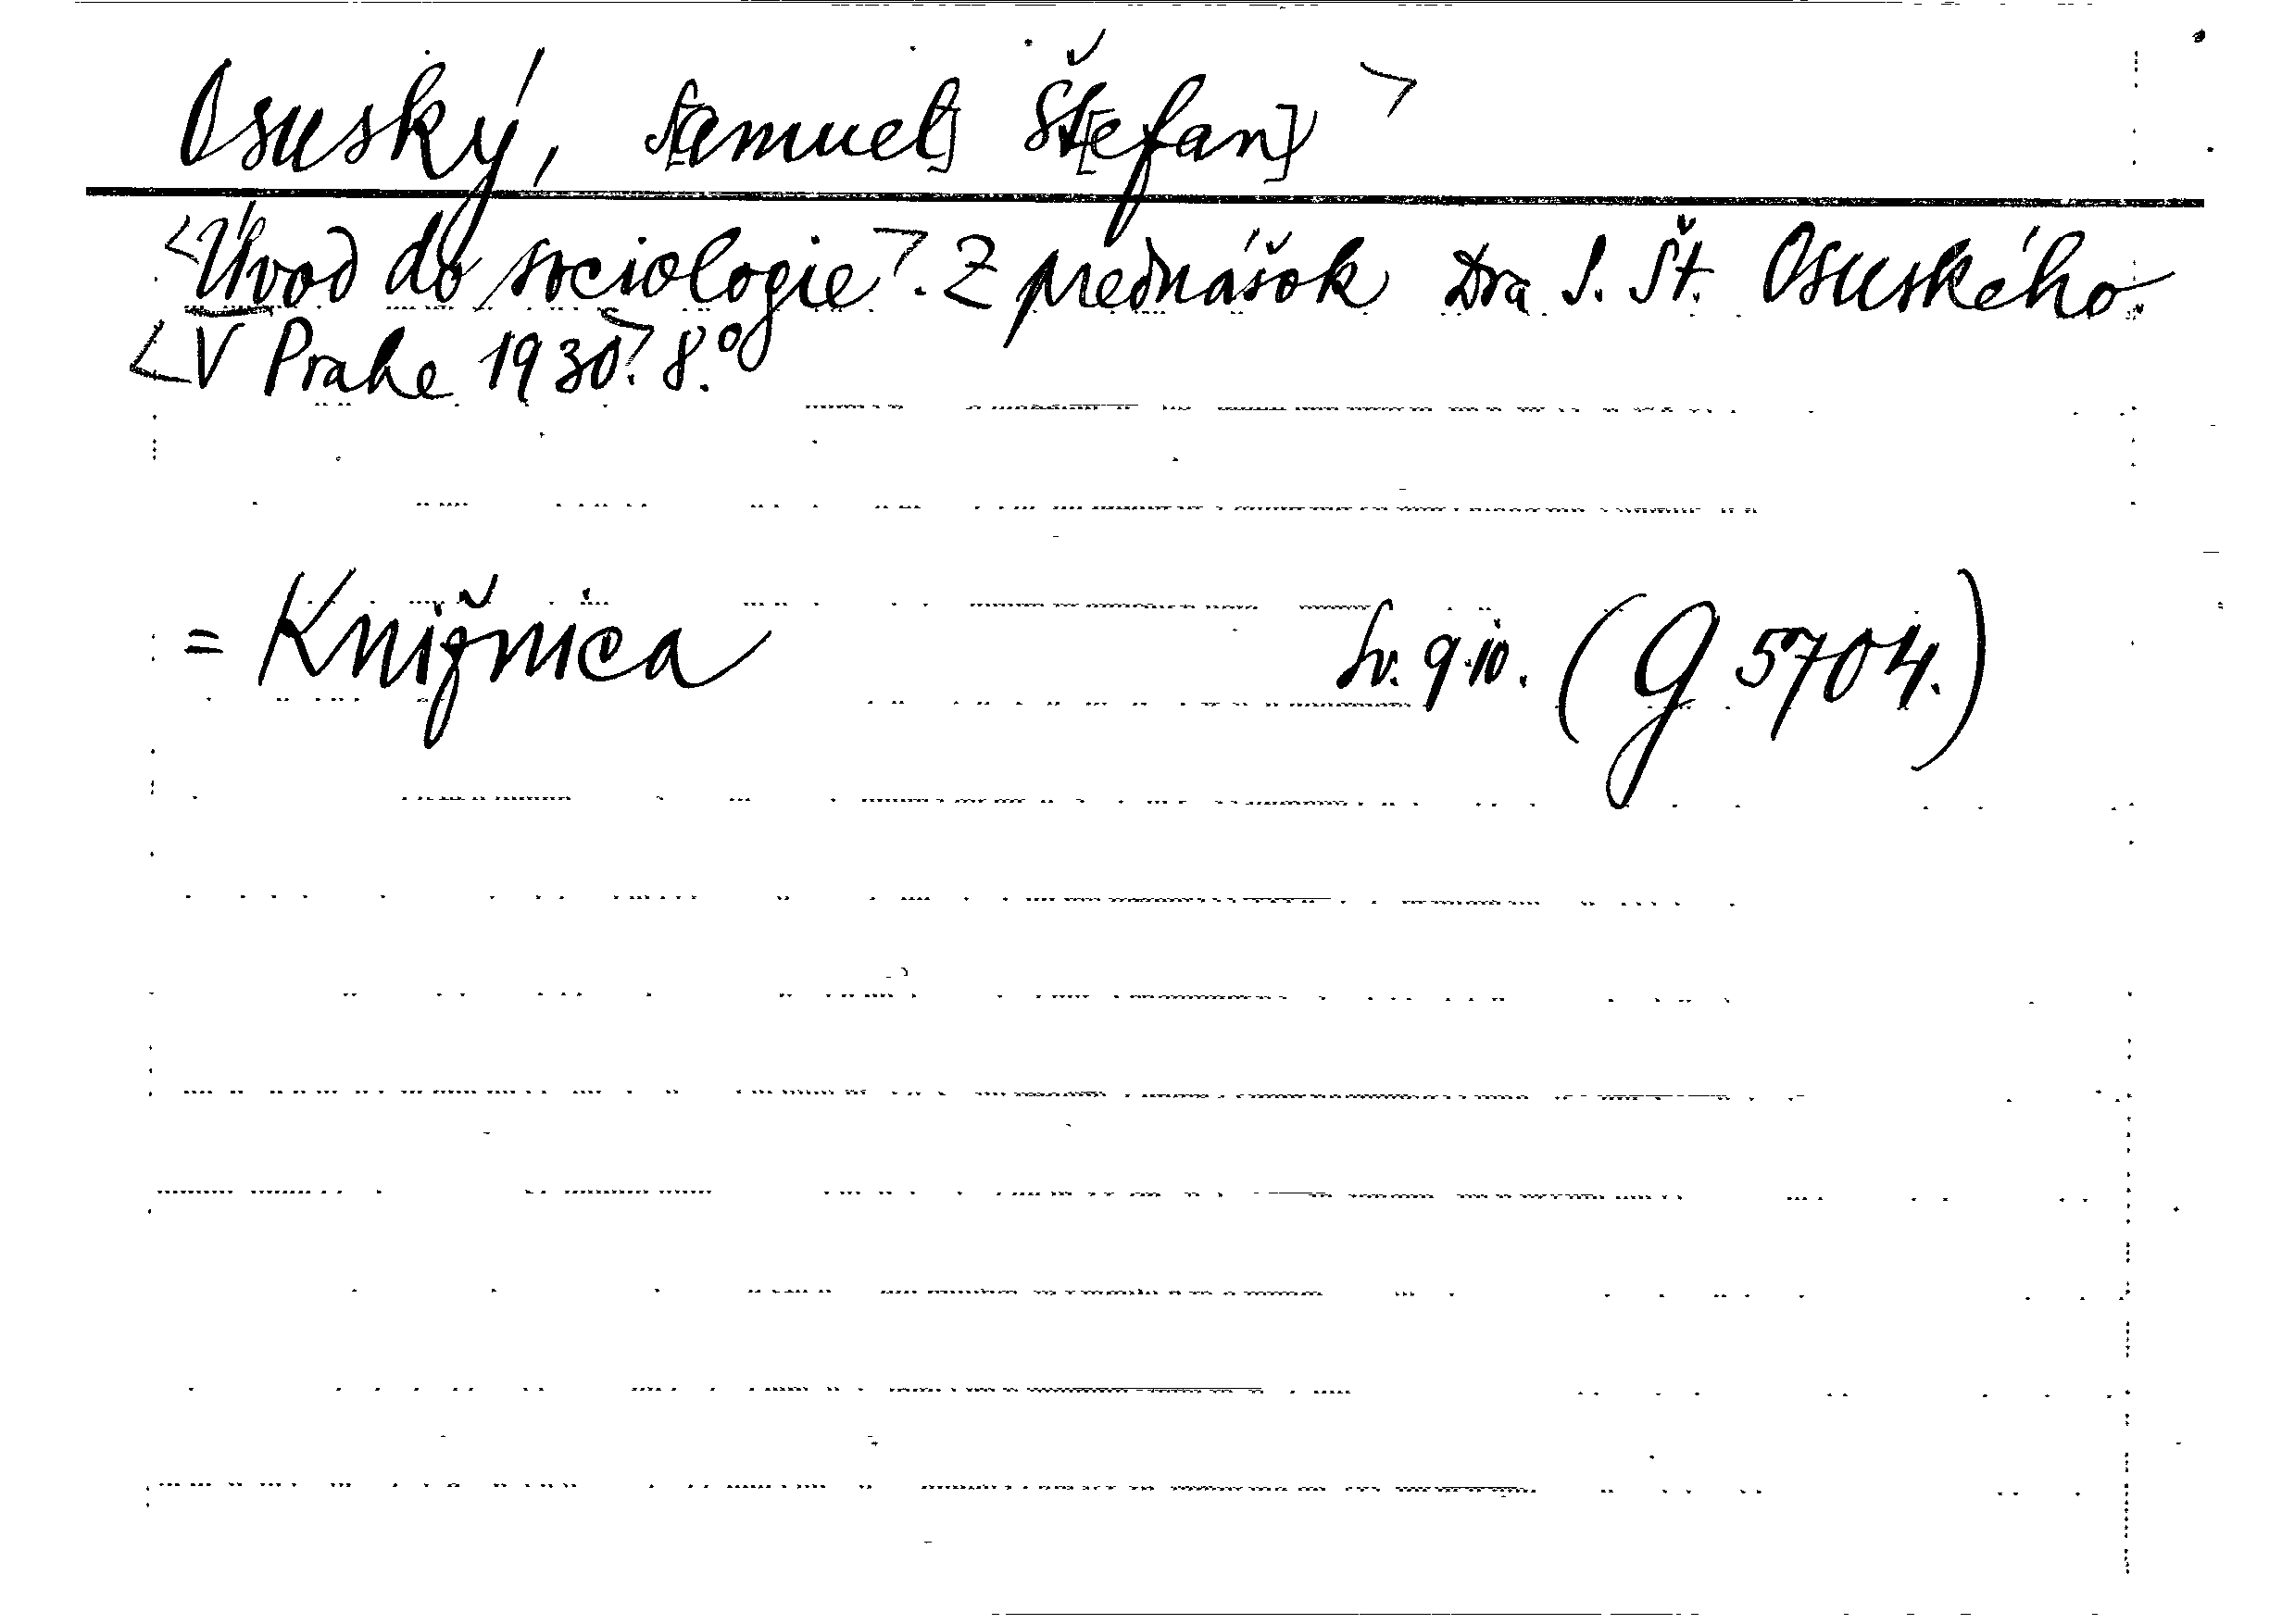 Osuský, S[amuel] Št[efan] >
<Úvod do sociologie>. Z prednášok Dra S. Št. Osuského.
<V Prahe 1930>. 8.º
= Knižnica Sv. 9.10. (G 5704.)